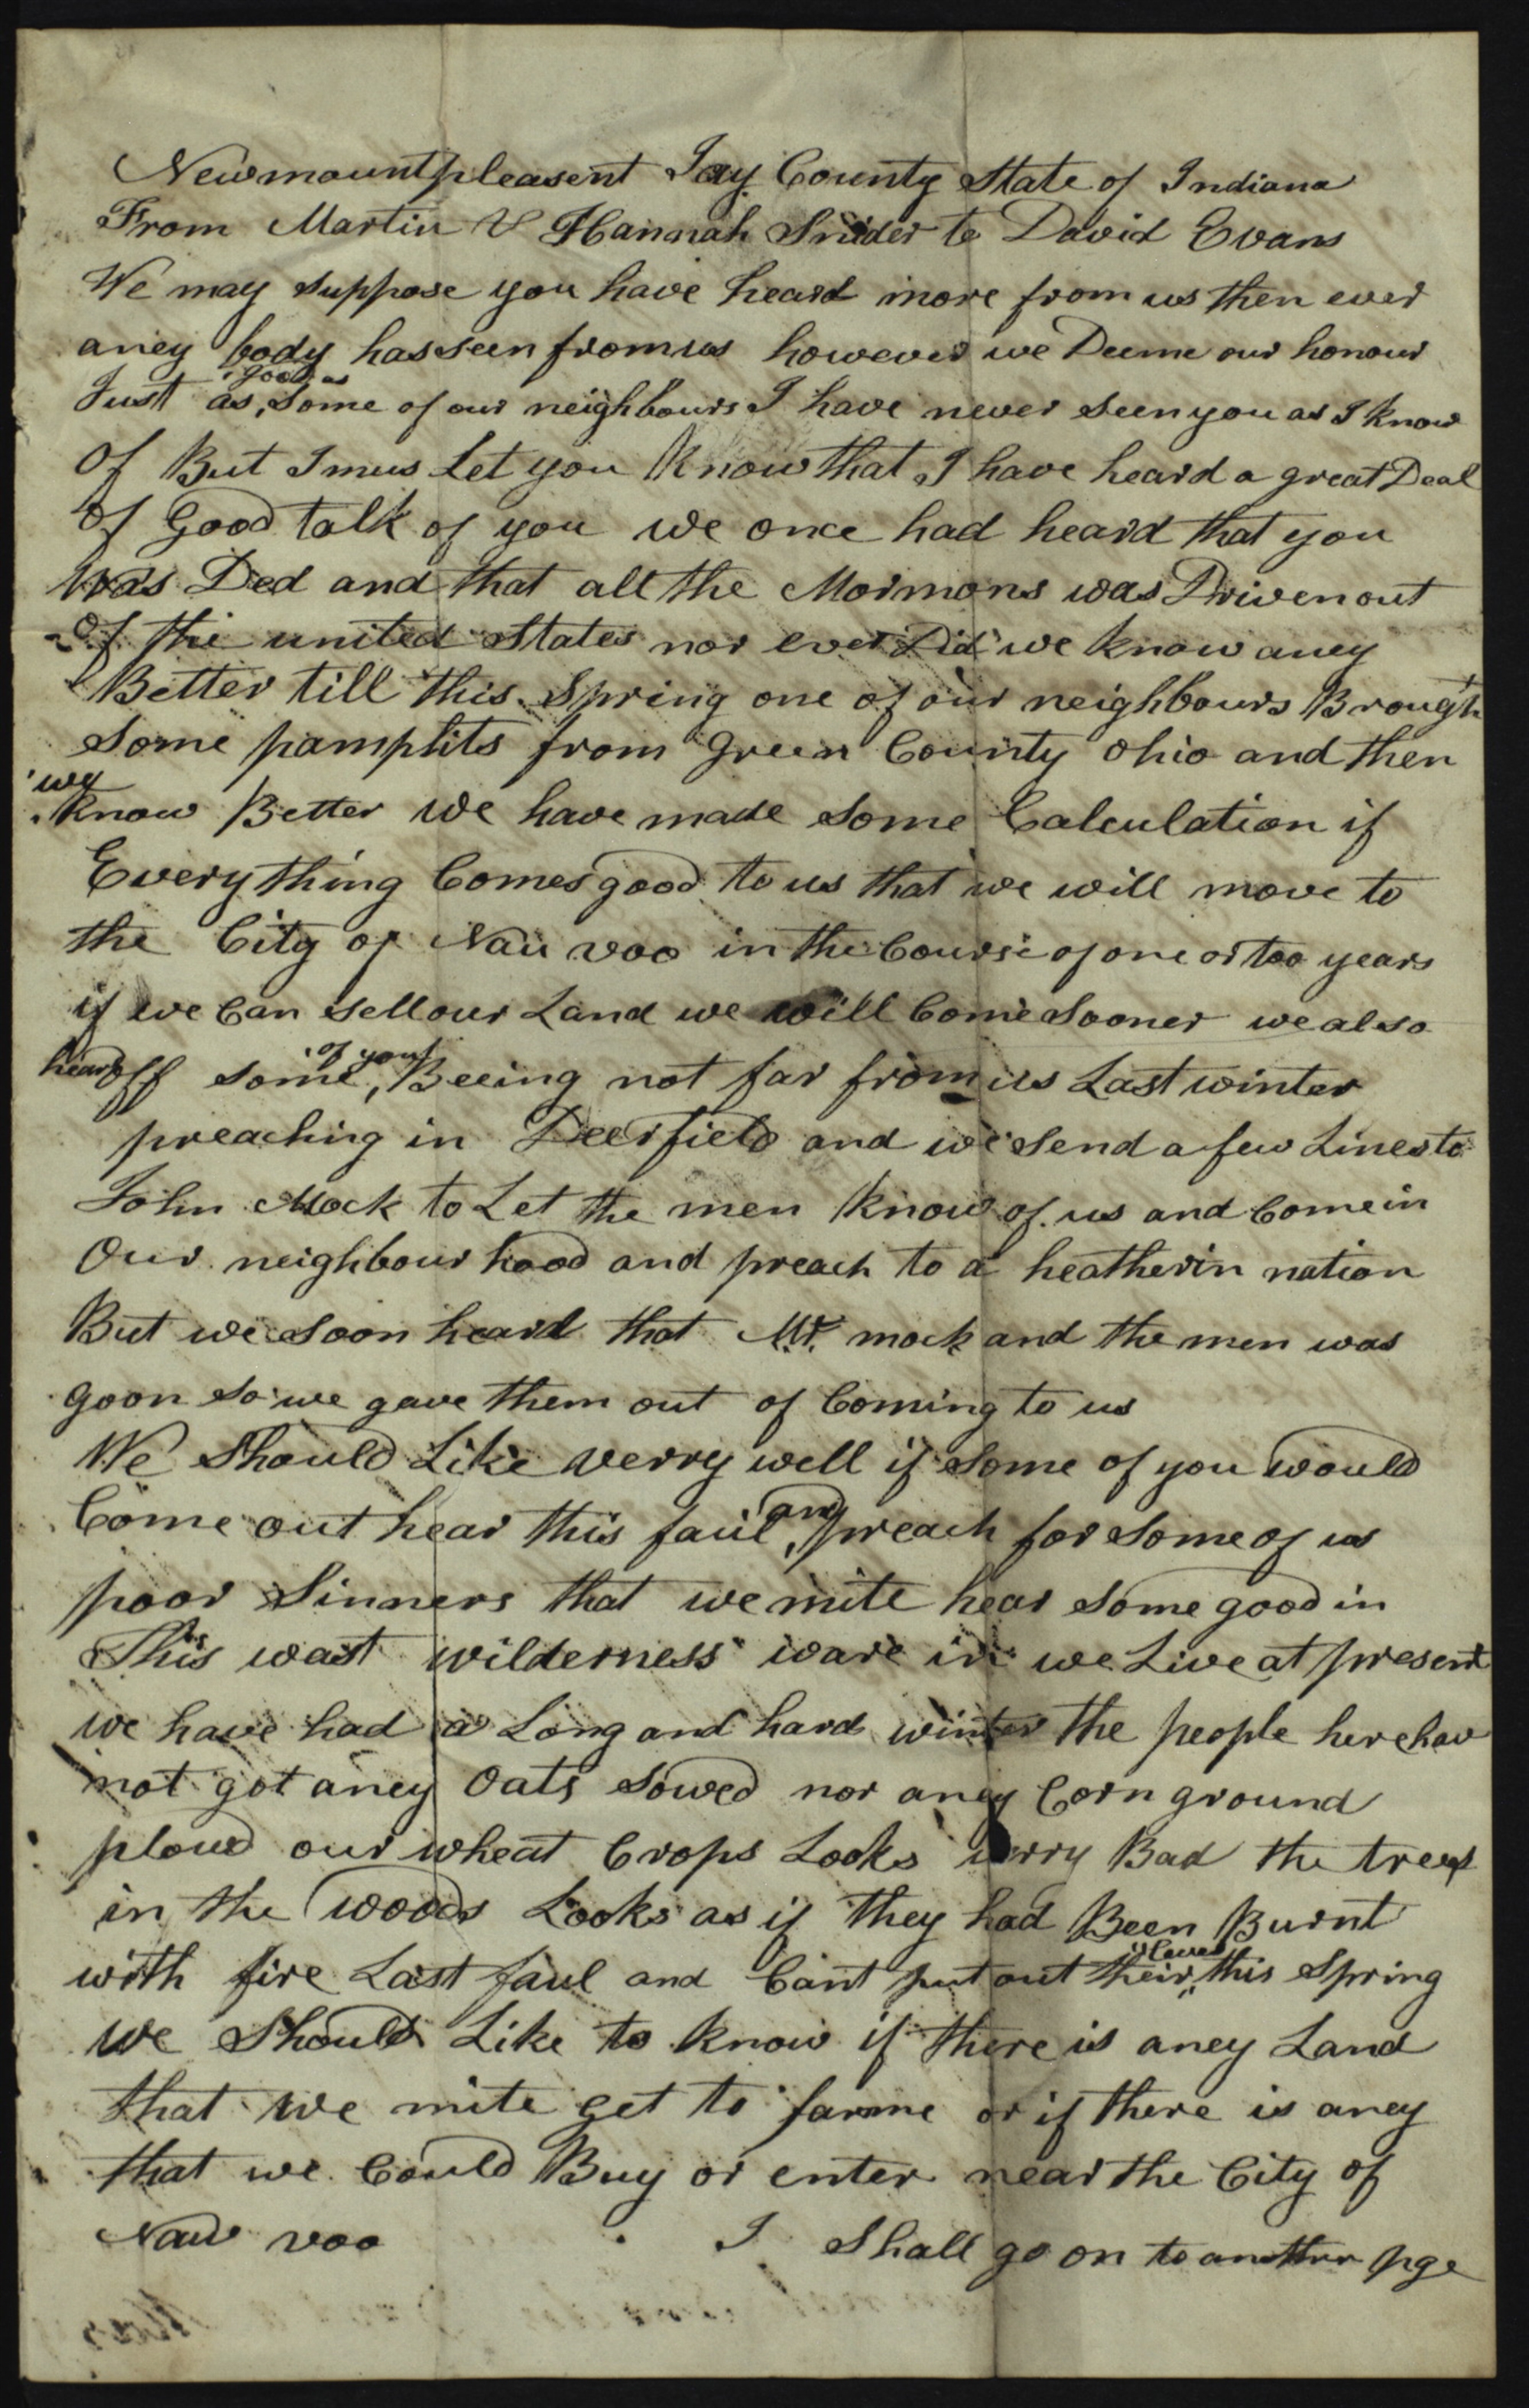 Newmountpleasent Jay County State of Indiana
From Martin & Hannah Snider to David Evans
We may suppose you have heard more from us then ever
aney body has seen from us however we Deeme our honour
Just as good as some of our neighbours I have never seen you as I know
Of But I mus Let you Know that I have heard a great Deal
of Good talk of you we once had heard that you
was Ded and that all the Mormons was Driven out
of the united States nor ever Did we know aney
Better till this Spring one of our neighbours Brought
Some pamplits from Green County Ohio and then
we know Better we have made some Calculation if
Every thing Comes good to us that we will move to
the City of Nau voo in the Course of one or too years
if we Can sell our Land we will Come Sooner we also
heard off some of you Beeing not far from us Last winter
preaching in Deerfield and we send a few Lines to
John Mock to Let the men Know of us and Come in
Our neighbour hood and preach to a heatherin nation
But we soon heard that Mr. mock and the men was
goon so we gave them out of Coming to us
We Should Like verry well if some of you would
Come out hear this faul and preach for some of us
poor Sinners that we mite hear some good in
This wast wilderness ware in we Live at present
we have had a Long and hard winter the people here hav
not got aney Oats Sowed nor aney Corn ground
plowd our wheat Crops Looks verry Bad the trees
in the woods Looks as if they had Been Burnt
with fire Last faul and Cant put out their leaves this Spring
we Should Like to know if there is aney Land
that we mite get to farme or if there is aney
that we Could Buy or enter near the City of
Nau voo I Shall go on to another pge